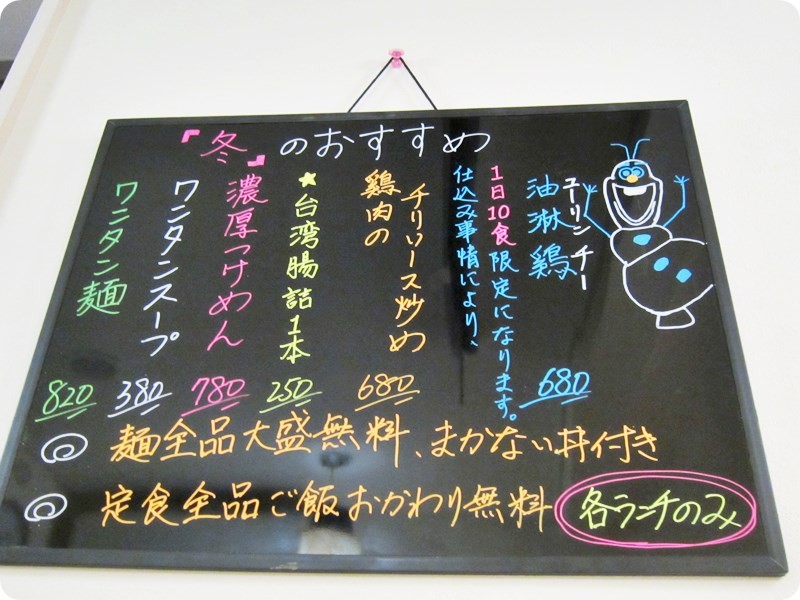 『冬』のおすすめ
ユーリンチー
油淋鶏
680
仕込み事情により、
1日10食限定になります。
チリソース炒め
鶏肉の
680
★台湾腸詰1本
250
濃厚つけめん
780
ワンタンスープ
380
ワンタン麺
820
◎麺全品大盛無料、まかない丼付き
◎定食全品ご飯おかわり無料
各ランチのみ